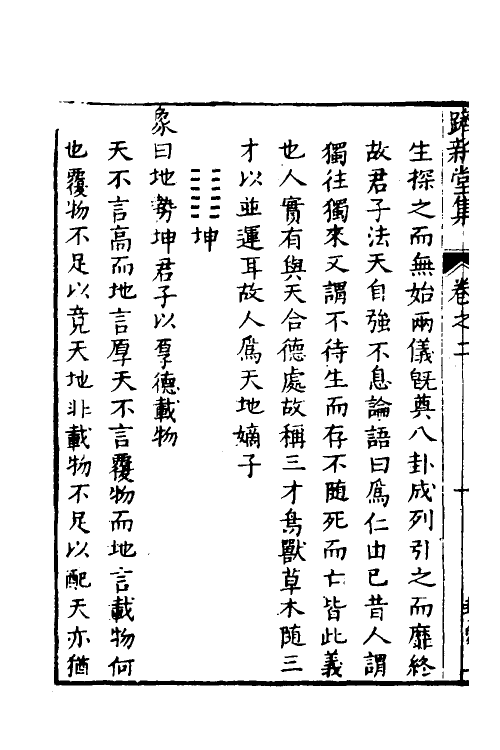 躋新堂集
卷之二
十
生探之而無始兩儀旣奠八卦成列引之而靡終
故君子法天自強不息論語曰爲仁由已昔人謂
獨往獨來又謂不待生而存不随死而亡皆此義
也人實有與天合德處故稱三才鳥獸草木随三
才以並運耳故人爲天地嫡子
䷁坤
象曰地勢坤君子以厚德載物
天不言高而地言厚天不言覆物而地言載物何
也覆物不足以竟天地非載物不足以配天亦猶